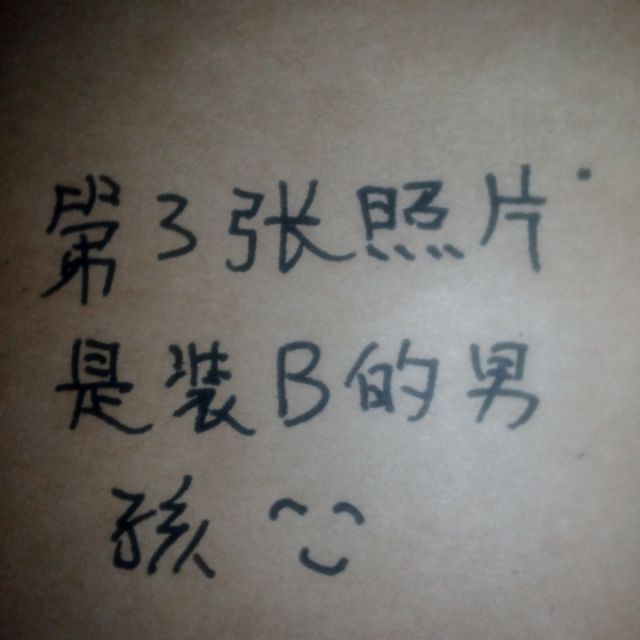 第3张照片
是装B的男
孩